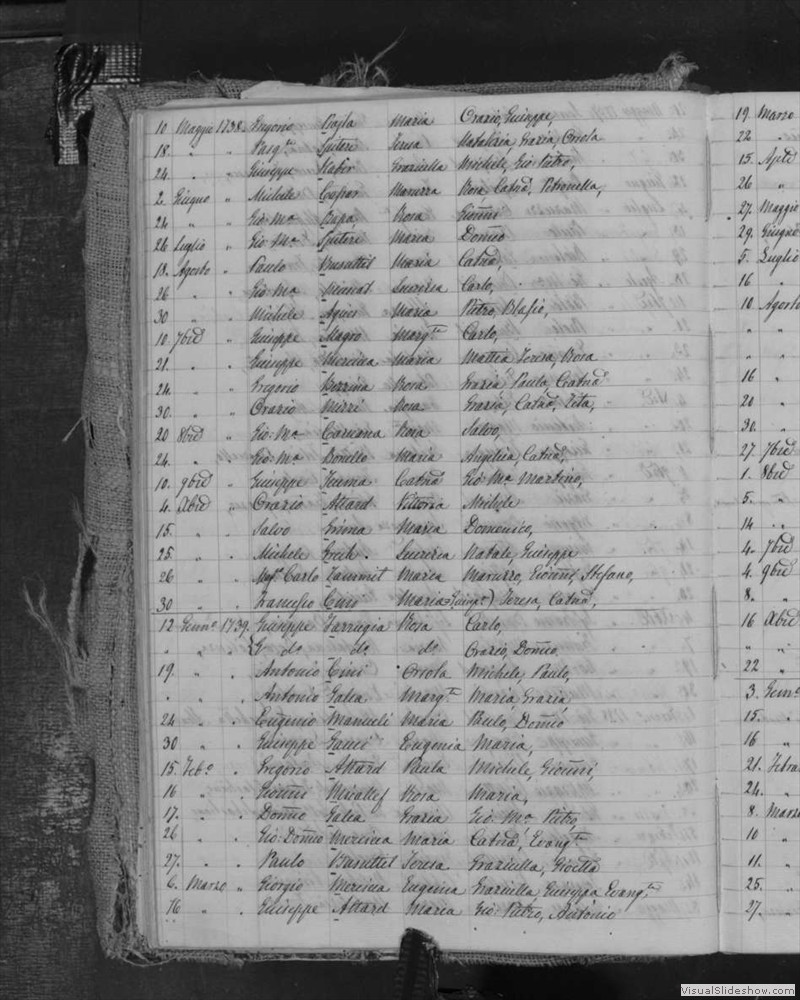 10. Maggio 1738. Gregorio Bajla Maria Orazio, Giuseppe,
18. " " Pasq.le Spiteri Teresa Grazia, Orsola
24. " " Giuseppe Xaber Graziella Michele, Gio Pietro,
2. Giugno " Michele Maruzza Rosa, Catna, Petronella,
24 " " Gio Ma Rosa Gioñni
26 Luglio " Gio Ma Spiteri Maria Domco
18. Agosto " Paulo Busuttil Maria Catna,
26 " " Gio Ma Lucrezia Carlo,
30 " " Michele Agius Maria Pietro, Blasio,
10. 7bre " Giuseppe Magro Margta Carlo,
21. " " Giuseppe Mercieca Maria Mattea Teresa, Rosa
24. " " Gregorio Rosa Grazia Paula, Catna
30. " " Orazio Mizzi Rosa Grazia, Catna, Vita,
20 8bre " Gio Ma Caruana Rosa Salvo,
24. " " Gio Ma Bonello Maria Angelica, Catna,
10. 9bre " Giuseppe Zuema Catna Gio Ma Martino,
4. Xbre " Orazio Attard Vittoria Michele
15. " " Salvo Grima Maria Domenico,
25. " " Michele Zech. Lucrezia Natale, Giuseppe
26 " " Carlo Zammit Maria Maruzzo, Gioñni, Stefano,
30 " " Francesco Cini Maria Teresa, Catna,
12 Genno 1739. Giuseppe Farrugia Rosa Carlo,
" " " do do do Orazio, Domco,
19. " " Antonio Cini Orsola Michele, Paulo,
" " " Antonio Galea Margta Maria, Grazia,
24 " " Eugenio Manueli Maria Paulo, Domco
30 " " Giuseppe Gauci Eugenia Maria,
15. Febo " Gregorio Attard Paula Michele, Gioñni,
16 " " Gioñni Micallef Rosa Maria,
17. " " Domco Galea Grazia Gio Ma Pietro,
26 " " Gio Domco Mercieca Maria Catna, Evangta
27. " " Paulo Busuttil Teresa Graziella, Gioetta
6. Marzo " Giorgio Mercieca Eugenia Graziella, Giuseppa Evangta
16 " " Giuseppe Attard Maria Gio Pietro, Antonio
19. Marzo
22 "
15. Aple
26 "
27. Maggio
29. Giugno
5. Luglio
16 "
10. Agosto
" "
" "
16 "
20 "
30. "
27. 7bre
1. 8bre
5. "
14 "
4. 7bre
4. 9bre
8. "
16 Xbre
" "
22 "
3. Genno
15. "
16 "
21. Febra
24. "
8. Marzo
10 "
11. "
25. "
27. "
VisualSlideshow.com